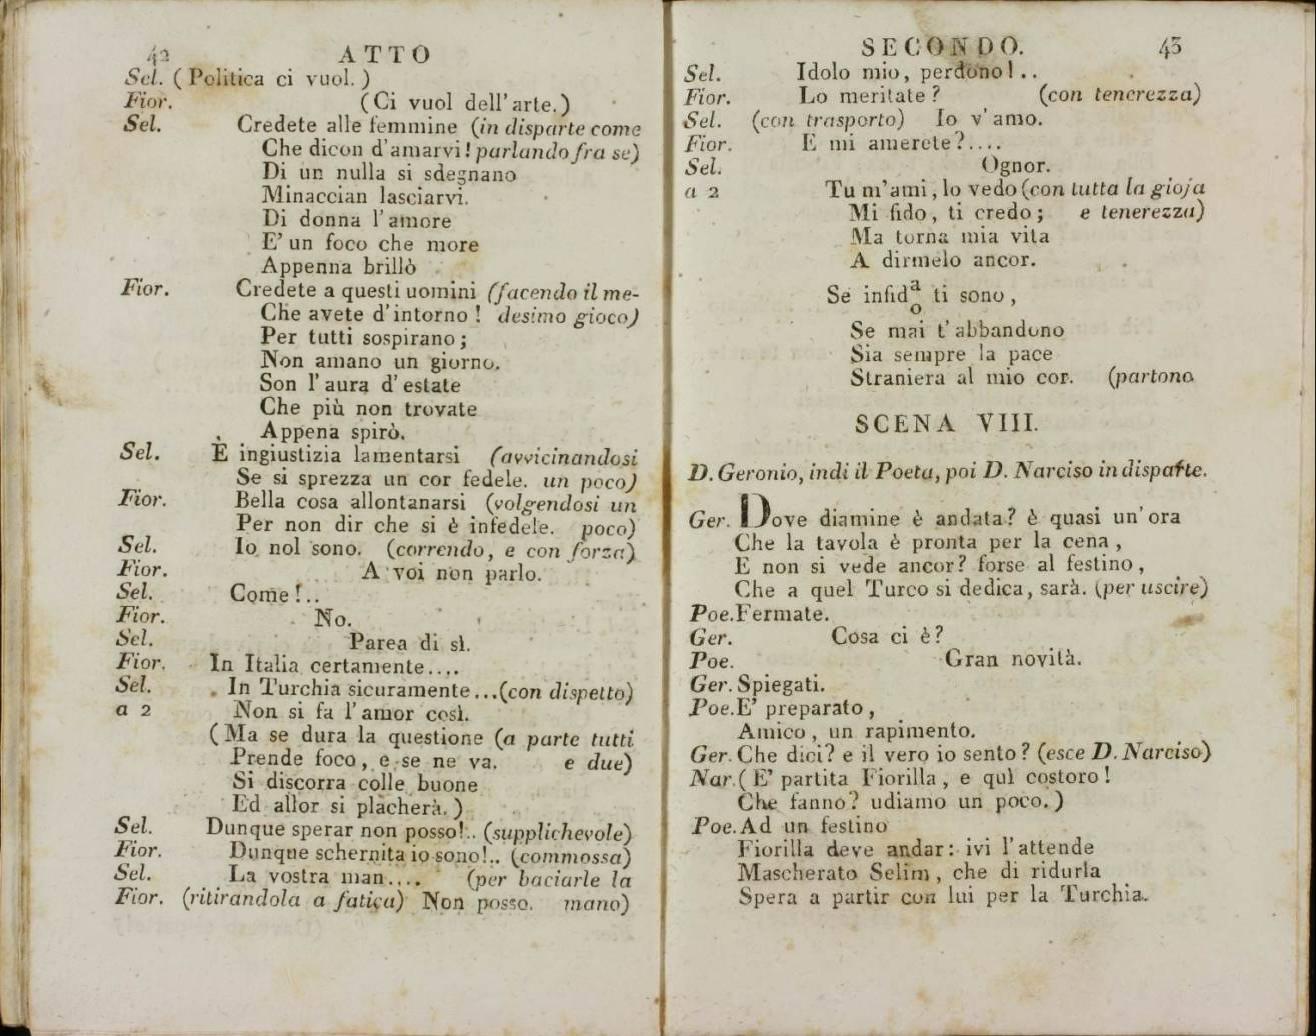 42 ATTO
Sel. ( Politica ci vuol. )
Fior. (Ci vuol dell' arte.)
Sel. Credete alle femmine (in disparte come
Che dicon d'amarvi! parlando fra se)
Di un nulla si sdegnano
Minaccian lasciarvi.
Di donna l'amore
E' un foco che more
Appenna brillò
Fior. Credete a questi uomini (facendo il me-
Che avete d'intorno! desimo gioco)
Per tutti sospirano;
Non amano un giorno.
Son l'aura d'estate
Che più non trovate
Appena spirò.
Sel. È ingiustizia lamentarsi (avvicinandosi
Se si sprezza un cor fedele. un poco)
Fior. Bella cosa allontanarsi (volgendosi un
Per non dir che si è infedele. poco)
Sel. Io nol sono. (correndo, e con forza)
Fior. A voi non parlo.
Sel. Come!..
Fior. No.
Sel. Parea di sì.
Fior. In Italia certamente....
Sel. In Turchia sicuramente...(con dispetto)
a 2 Non si fa l'amor così.
(Ma se dura la questione (a parte tutti
Prende foco, e se ne va. e due)
Si discorra colle buone
Ed allor si placherà.)
Sel. Dunque sperar non posso!.. (supplichevole)
Fior. Dunque schernita io sono!.. (commossa)
Sel. La vostra man.... (per baciarle la
Fior. (ritirandola a fatica) Non posso. mano)
SECONDO. 43
Sel. Idolo mio, perdono!..
Fior. Lo meritate? (con tenerezza)
Sel. (con trasporto) Io v'amo.
Fior. E mi amerete?....
Sel. Ognor.
a 2 Tu m'ami, lo vedo (con tutta la gioja
Mi fido, ti credo; e tenerezza)
Ma torna mia vita
A dirmelo ancor.
Se infid a o ti sono,
Se mai t'abbandono
Sia sempre la pace
Straniera al mio cor. (partono
SCENA VIII.
D. Geronio, indi il Poeta, poi D. Narciso in disparte.
Ger. Dove diamine è andata? è quasi un'ora
Che la tavola è pronta per la cena,
E non si vede ancor? forse al festino,
Che a quel Turco si dedica, sarà. (per uscire)
Poe. Fermate.
Ger. Cosa ci è?
Poe. Gran novità.
Ger. Spiegati.
Poe. E' preparato,
Amico, un rapimento.
Ger. Che dici? e il vero io sento? (esce D. Narciso)
Nar. ( E' partita Fiorilla, e quì costoro!
Che fanno? udiamo un poco.)
Poe. Ad un festino
Fiorilla deve andar: ivi l'attende
Mascherato Selim, che di ridurla
Spera a partir con lui per la Turchia.